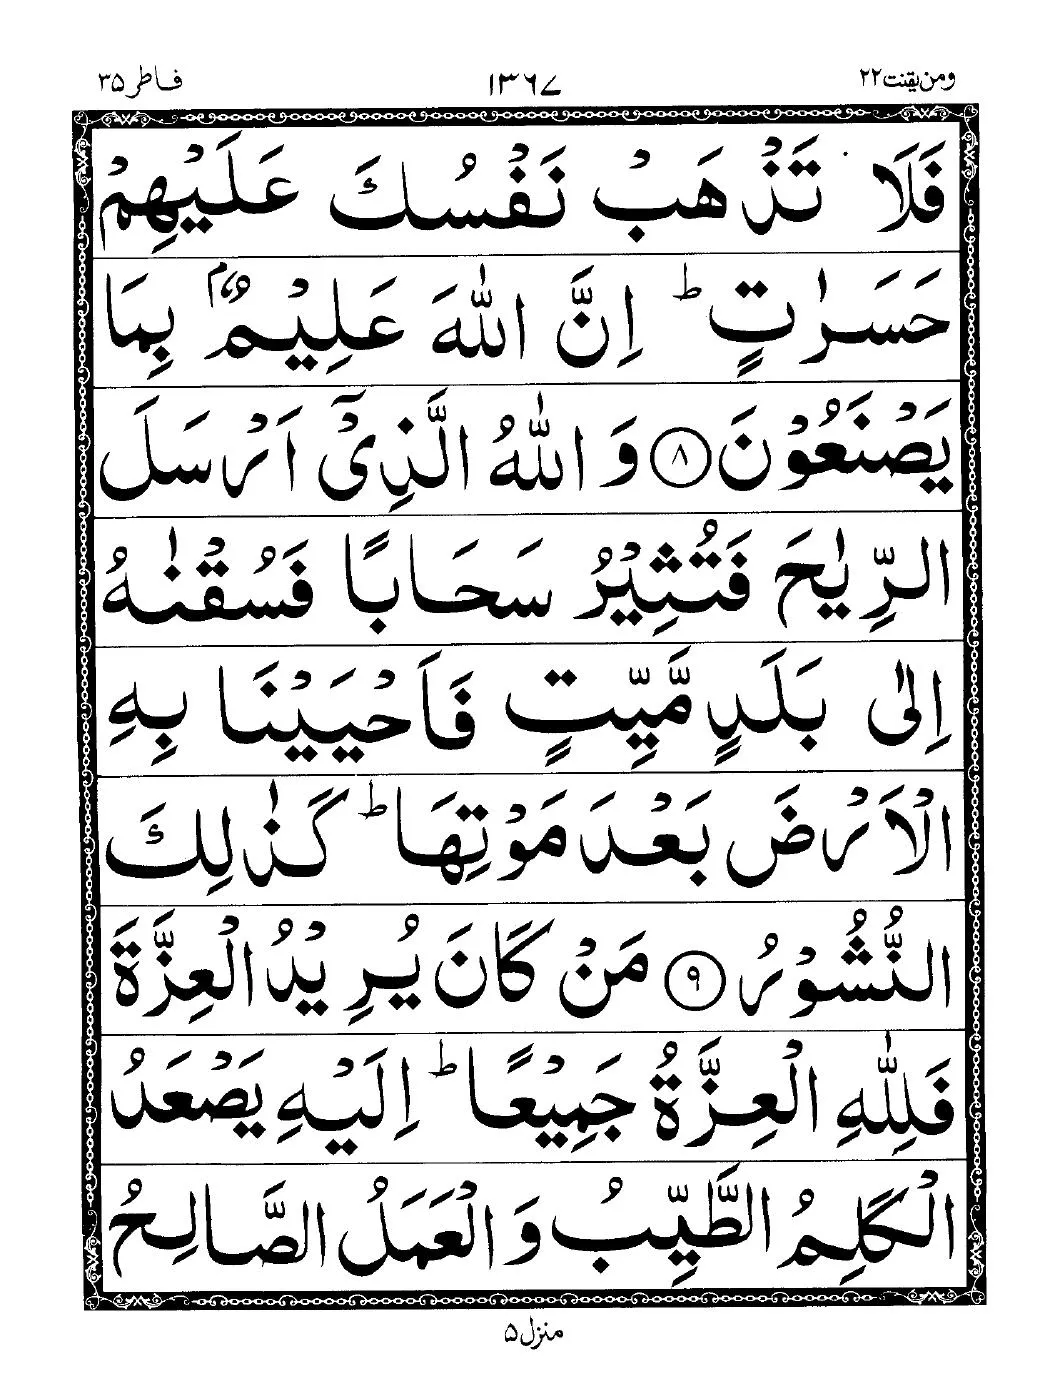 ومن یقنت ۲۲ ۱۳۶۷ فاطر ۳۵
فَلَا تَذْهَبْ نَفْسُكَ عَلَيْهِمْ
حَسَرٰتٍ ؕ اِنَّ اللّٰهَ عَلِيْمٌۢ بِمَا
يَصْنَعُوْنَ ۸ وَ اللّٰهُ الَّذِيْۤ اَرْسَلَ
الرِّيٰحَ فَتُثِيْرُ سَحَابًا فَسُقْنٰهُ
اِلٰى بَلَدٍ مَّيِّتٍ فَاَحْيَيْنَا بِهِ
الْاَرْضَ بَعْدَ مَوْتِهَا ؕ كَذٰلِكَ
النُّشُوْرُ ۹ مَنْ كَانَ يُرِيْدُ الْعِزَّةَ
فَلِلّٰهِ الْعِزَّةُ جَمِيْعًا ؕ اِلَيْهِ يَصْعَدُ
الْكَلِمُ الطَّيِّبُ وَ الْعَمَلُ الصَّالِحُ
منزل ۵